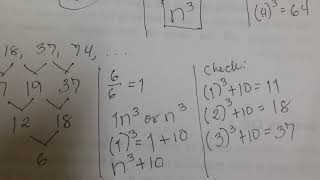 n³
(4)³ = 64
18, 37, 74, ....
7 19 37
12 18
6
6/6 = 1
1n³ or n³
(1)³ = 1 + 10
n³ + 10
Check:
(1)³ + 10 = 11
(2)³ + 10 = 18
(3)³ + 10 = 37